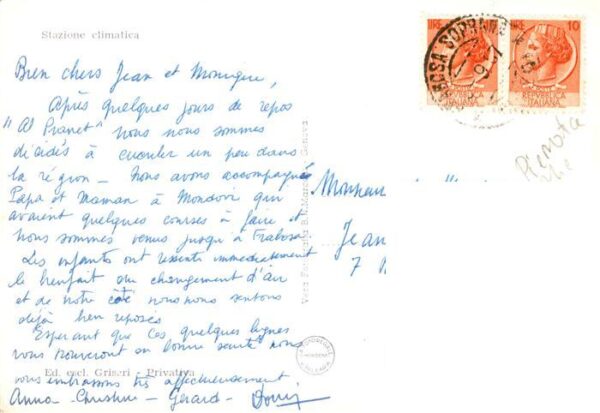 Stazione climatica
Bien chers Jean et Monique,
Après quelques jours de repos
"Al Pianet" nous nous sommes
décidés à circuler un peu dans
la région - Nous avons accompagné
Papa et Maman à Mondovi qui
avaient quelques courses à faire et
nous sommes venus jusqu'à Frabosa
Les enfants ont ressenti immédiatement
le bienfait du changement d'air
et de notre côté nous nous sentons
déjà bien reposés
Espérant que ces quelques lignes
vous trouveront en bonne santé nous
vous embrassons très affectueusement.
Anna-Christine - Gérard -
Ed. escl. Griseri - Privativa
Vera Fotografia
Genova
LIRE
10
REPUBBLICA
ITALIANA
FRABOSA SOPRANA
Monsieur
Jean
7